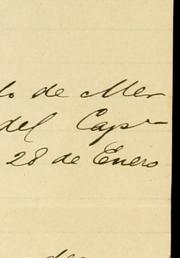 lo de Mer
del Capn
28 de Enero
de